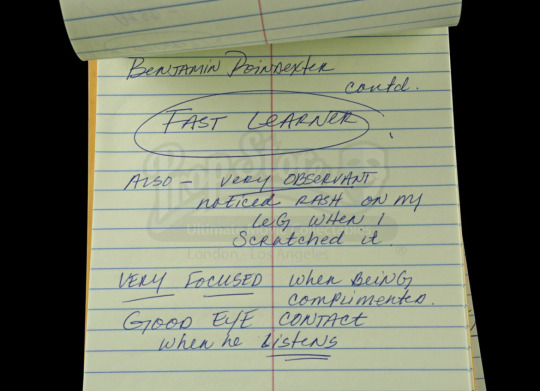 BENJAMIN POINDEXTER
contd.
FAST LEARNER
ALSO – VERY OBSERVANT
noticed RASH ON MY
LEG WHEN I
SCRATCHED it.
VERY FOCUSED when BEING
complimented.
GOOD EYE CONTACT
when he Listens
PropStore
Ultimate
London - Los Angeles